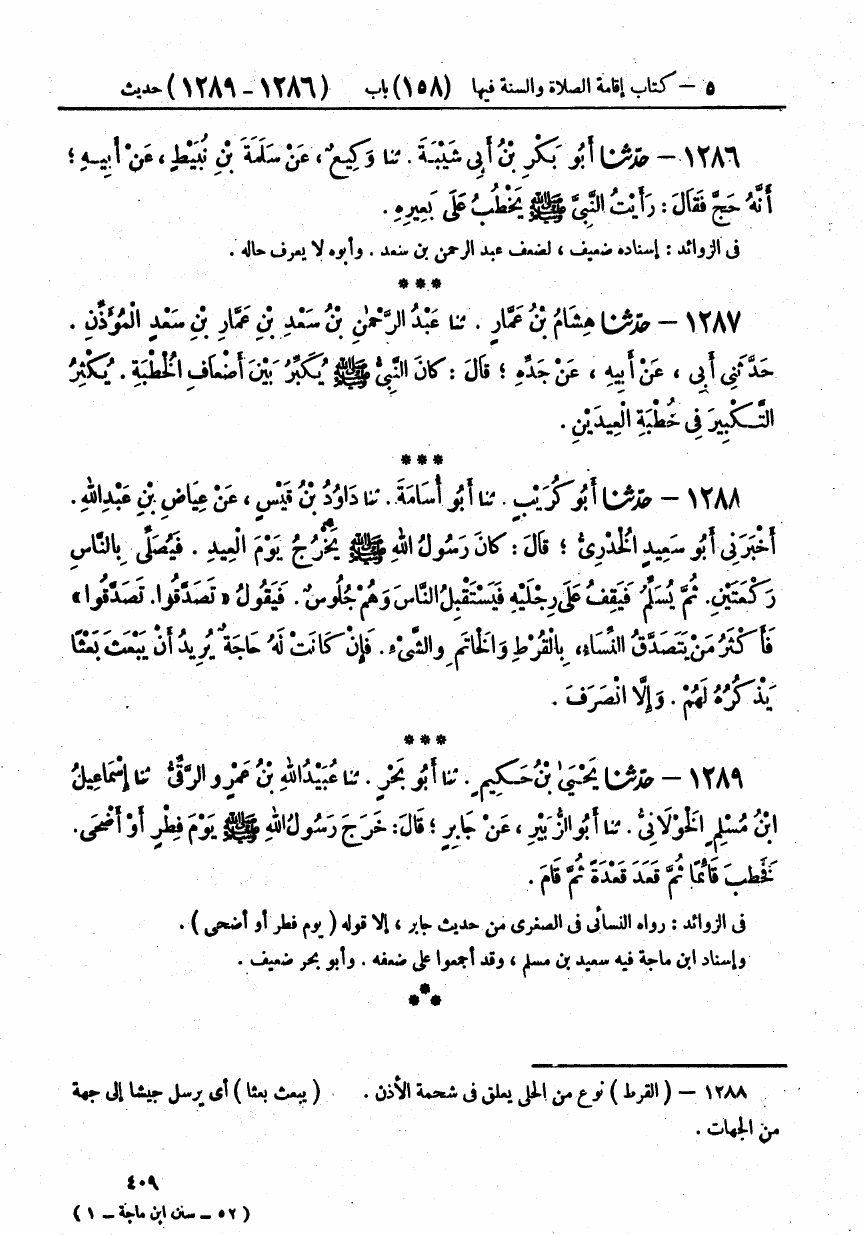 ٥ – كتاب إقامة الصلاة والسنة فيها (١٥٨) باب (١٢٨٦ – ١٢٨٩) حديث
١٢٨٦ – حدّثنا أَبُو بَكْرِ بْنُ أَبِى شَيْبَةَ . ثنا وَكِيعٌ ، عَنْ سَلَمَةَ بْنِ نُبَيْطٍ ، عَنْ أَبِيهِ ؛
أَنَّهُ حَجَّ فَقَالَ : رَأَيْتُ النَّبِىَّ ﷺ يَخْطُبُ عَلَى بَعِيرِهِ .
فى الزوائد : إسناده ضعيف ، لضعف عبد الرحمن بن سعد . وأبوه لا يعرف حاله .
***
١٢٨٧ – حدّثنا هِشَامُ بْنُ عَمَّارٍ . ثنا عَبْدُ الرَّحْمٰنِ بْنُ سَعْدِ بْنِ عَمَّارِ بْنِ سَعْدٍ الْمُؤَذِّنِ .
حَدَّثَنِى أَبِى ، عَنْ أَبِيهِ ، عَنْ جَدِّهِ ؛ قَالَ : كَانَ النَّبِىُّ ﷺ يُكَبِّرُ بَيْنَ أَضْعَافِ الْخُطْبَةِ . يُكْثِرُ
التَّكْبِيرَ فِى خُطْبَةِ الْعِيدَيْنِ .
***
١٢٨٨ – حدّثنا أَبُو كُرَيْبٍ . ثنا أَبُو أُسَامَةَ . ثنا دَاوُدُ بْنُ قَيْسٍ ، عَنْ عِيَاضِ بْنِ عَبْدِاللهِ .
أَخْبَرَنِى أَبُو سَعِيدٍ الْخُدْرِىُّ ؛ قَالَ : كَانَ رَسُولُ اللهِ ﷺ يَخْرُجُ يَوْمَ الْعِيدِ . فَيُصَلِّى بِالنَّاسِ
رَكْعَتَيْنِ. ثُمَّ يُسَلِّمُ فَيَقِفُ عَلَى رِجْلَيْهِ فَيَسْتَقْبِلُ النَّاسَ وَهُمْ جُلُوسٌ . فَيَقُولُ « تَصَدَّقُوا. تَصَدَّقُوا »
فَأَكْثَرُ مَنْ يَتَصَدَّقُ النِّسَاءِ، بِالْقُرْطِ وَالْخَاتَمِ وَالشَّىْءِ . فَإِنْ كَانَتْ لَهُ حَاجَةٌ يُرِيدُ أَنْ يَبْعَثَ بَعْثًا
يَذْكُرُهُ لَهُمْ . وَإِلَّا انْصَرَفَ .
***
١٢٨٩ – حدّثنا يَحْيَىٰ بْنُ حَكِيمٍ . ثنا أَبُو بَحْرٍ . ثنا عُبَيْدُاللهِ بْنُ عَمْرٍو الرَّقِّىُّ ثنا إِسْمَاعِيلُ
ابْنُ مُسْلِمٍ الْخَوْلَانِىُّ . ثنا أَبُو الزُّبَيْرِ ، عَنْ جَابِرٍ ؛ قَالَ: خَرَجَ رَسُولُ اللهِ ﷺ يَوْمَ فِطْرٍ أَوْ أَضْحَى.
فَخَطَبَ قَائِمًا ثُمَّ قَعَدَ قَعْدَةً ثُمَّ قَامَ .
فى الزوائد : رواه النسائى فى الصغرى من حديث جابر ، إلا قوله ( يوم فطر أو أضحى ) .
وإسناد ابن ماجة فيه سعيد بن مسلم ، وقد أجمعوا على ضعفه . وأبو بحر ضعيف .
***
١٢٨٨ – ( القرط ) نوع من الحلى يعلق فى شحمة الأذن . ( يبعث بعثا ) أى يرسل جيشا إلى جهة
من الجهات .
٤٠٩
( ٥٢ – سنن ابن ماجة – ١ )